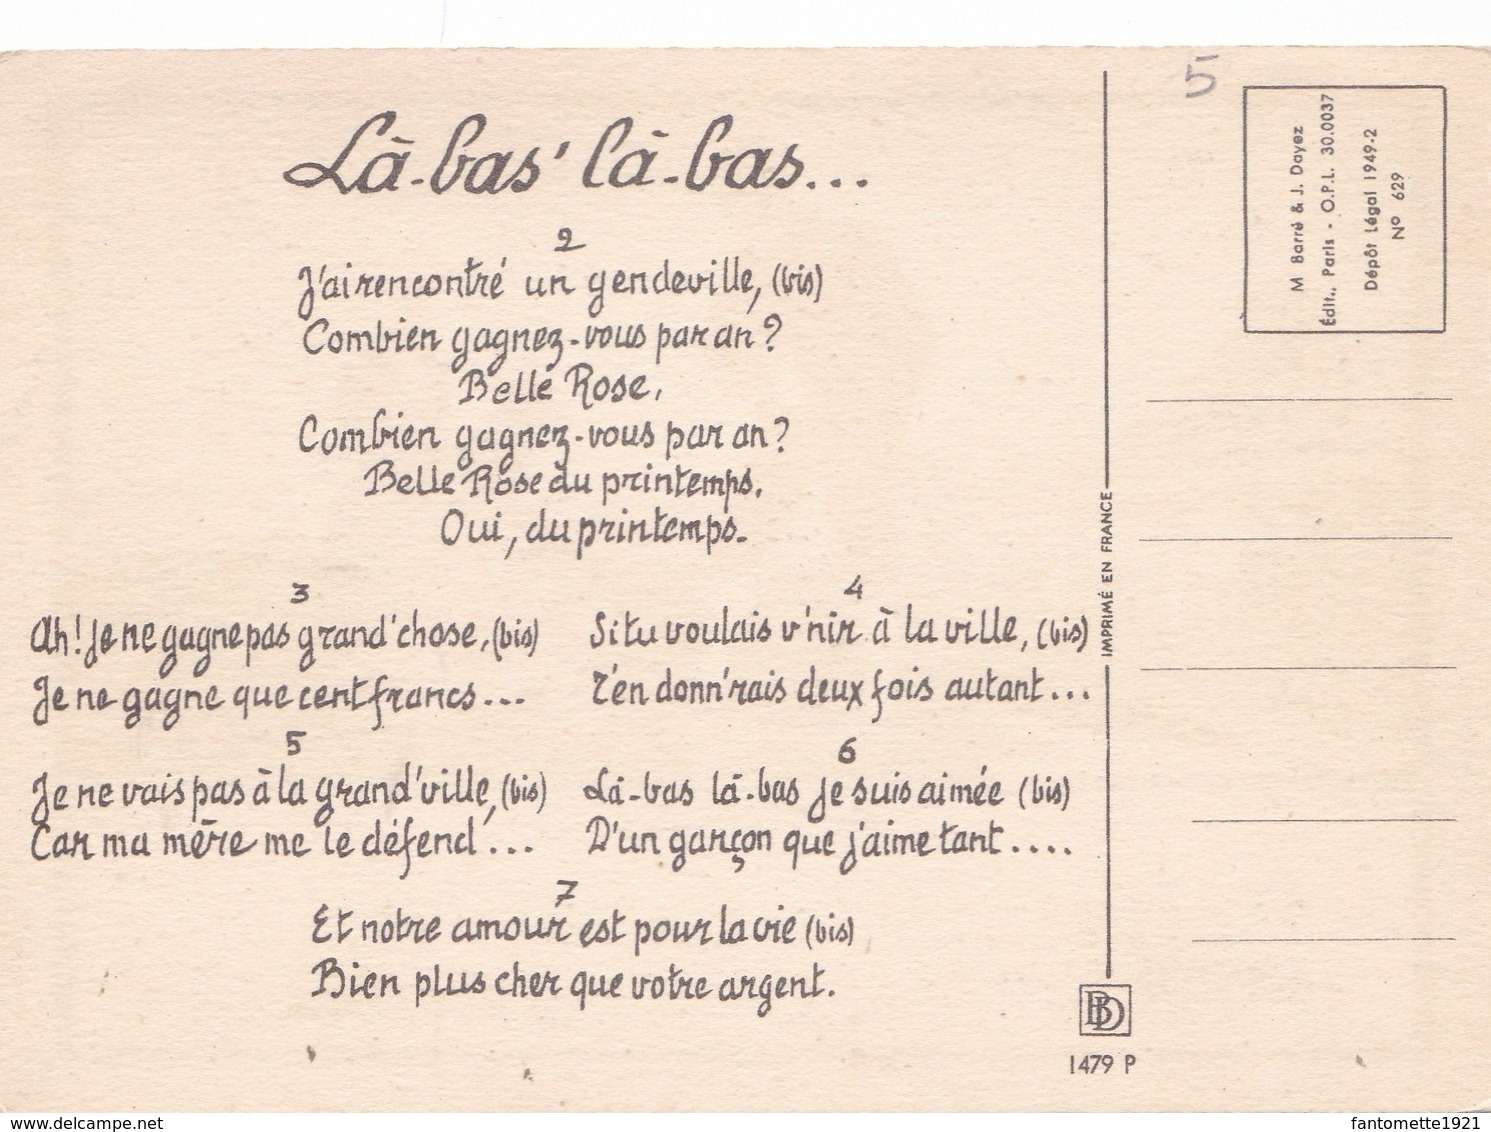 Là-bas' là-bas...
2
J'ai rencontré un gendeville, (bis)
Combien gagnez-vous par an ?
Belle Rose,
Combien gagnez-vous par an ?
Belle Rose du printemps.
Oui, du printemps.
3
Ah! Je ne gagne pas grand'chose, (bis)
Je ne gagne que cent francs...
4
Si tu voulais v'nir à la ville, (bis)
T'en donn'rais deux fois autant...
5
Je ne vais pas à la grand'ville, (bis)
Car ma mère me le défend...
6
Là-bas là-bas je suis aimée (bis)
D'un garçon que j'aime tant....
7
Et notre amour est pour la vie (bis)
Bien plus cher que votre argent.
IMPRIMÉ EN FRANCE
BD
1479 P
5
M Barré & J. Dayez
Édit., Paris - O.P.L. 30.0037
Dépôt Légal 1949-2
Nº 629
delcampe.net
fantomette1921